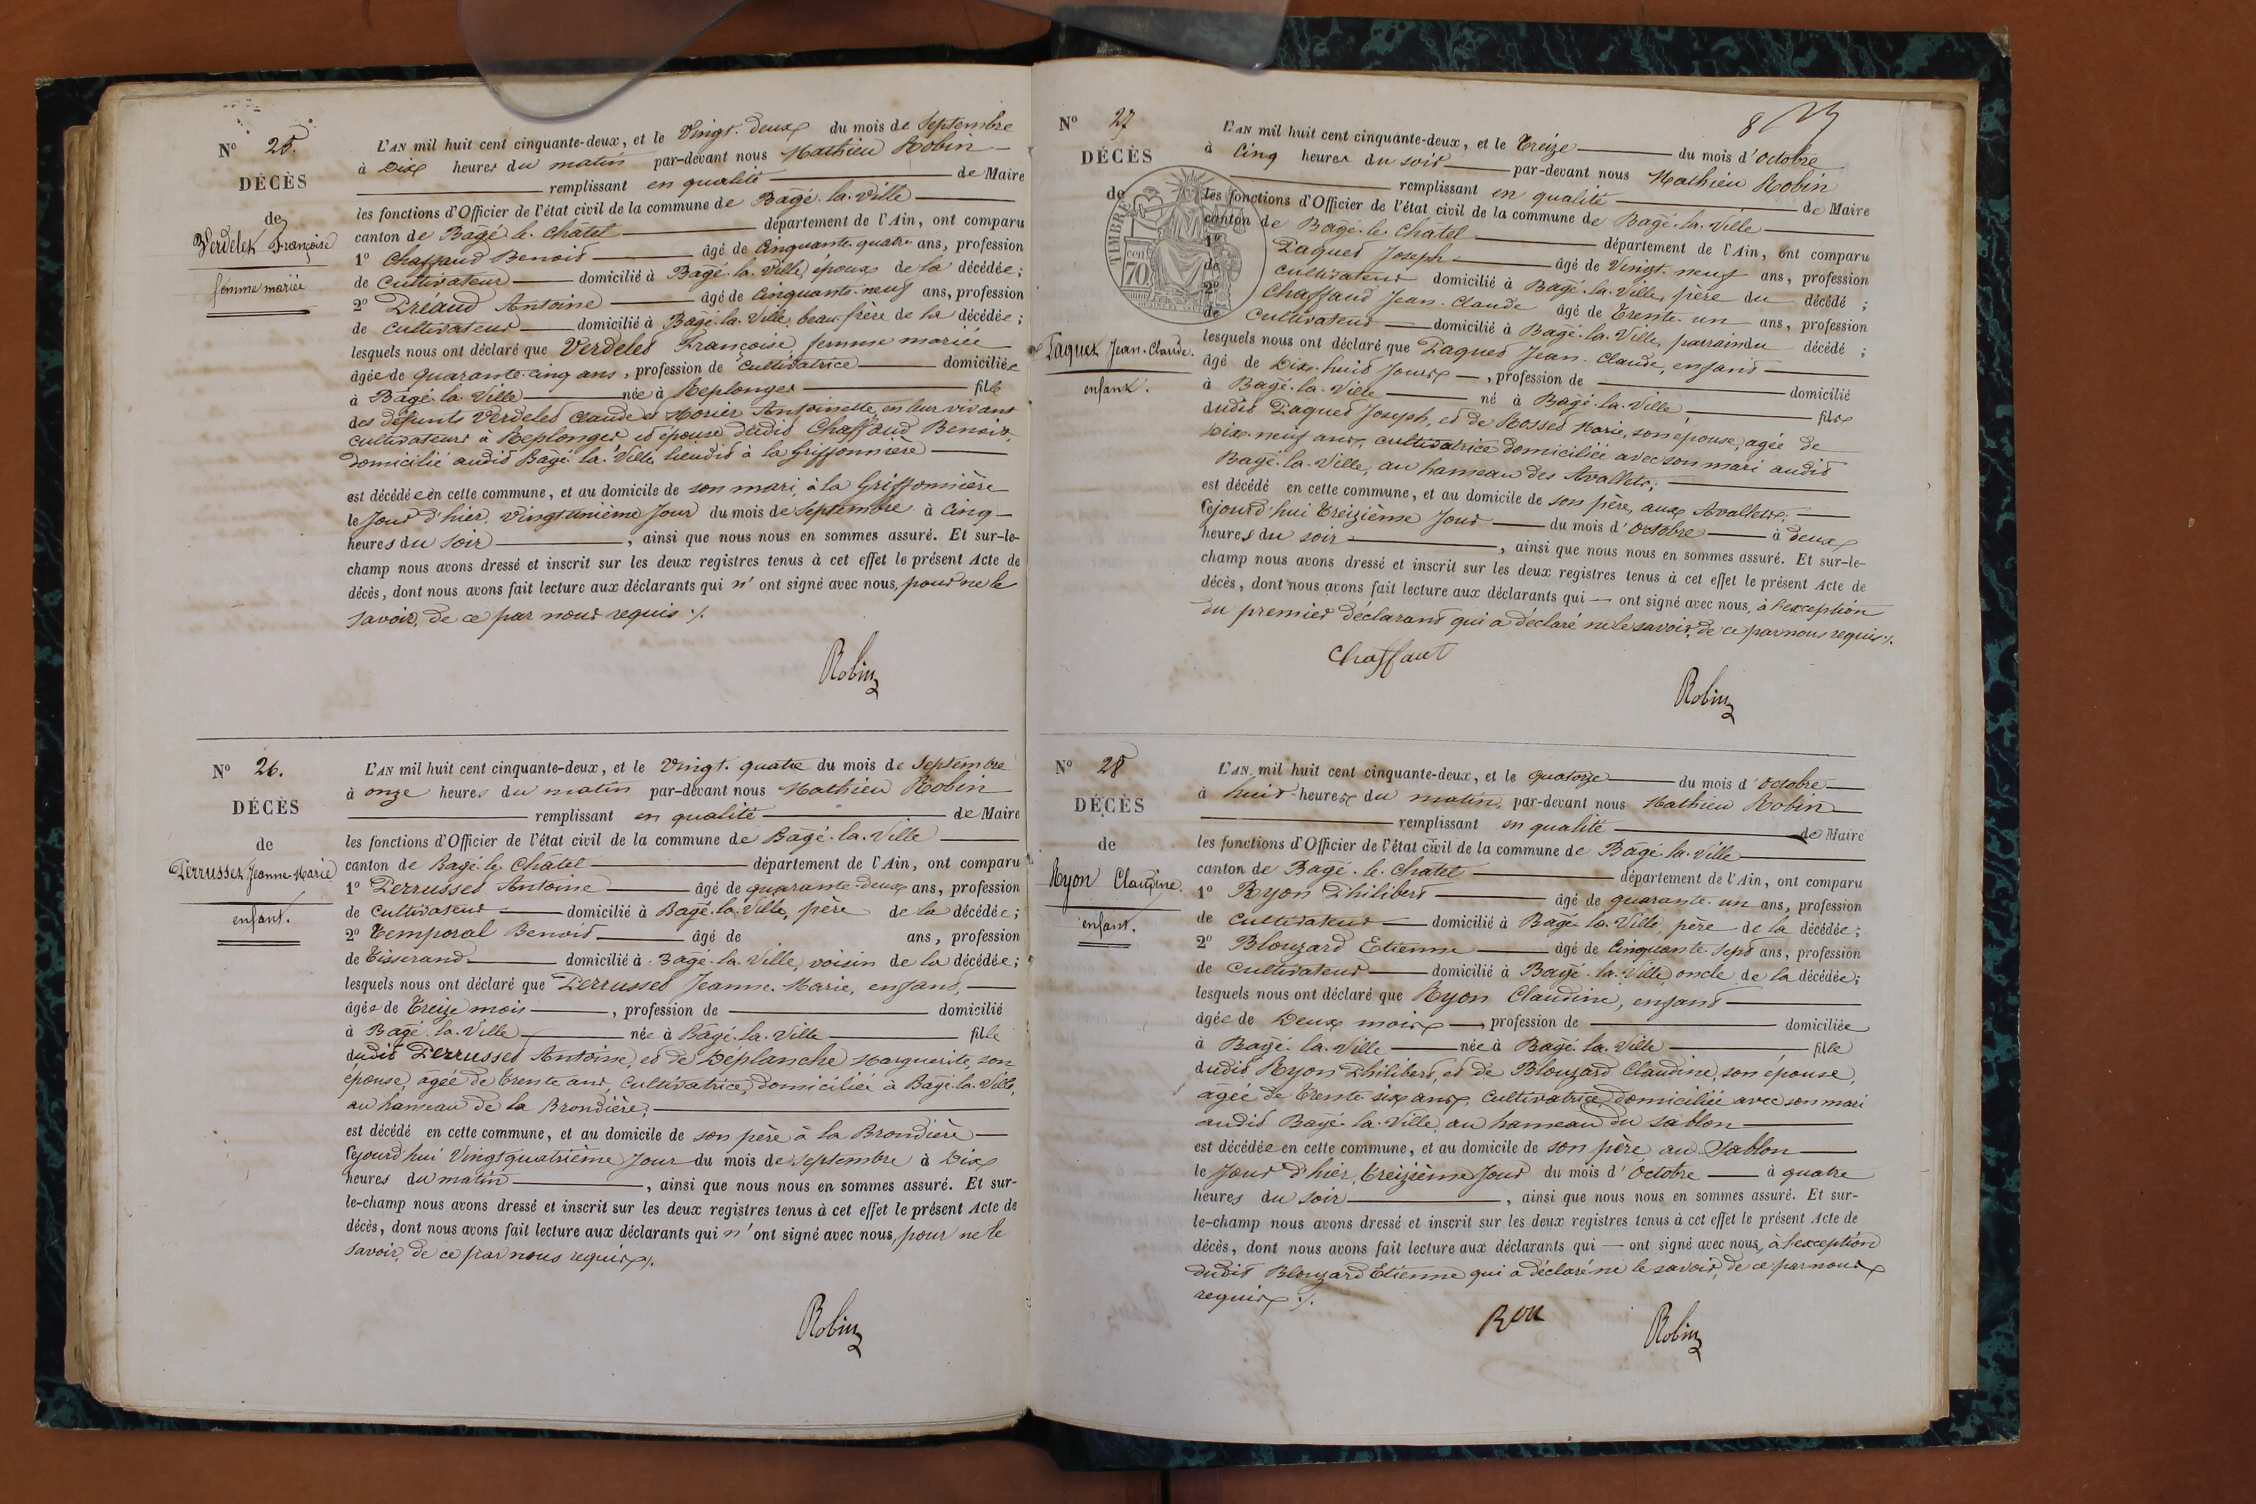 N° 25.
DÉCÈS
de
Verdelet Françoise
femme mariée
L'AN mil huit cent cinquante-deux, et le Vingt-deux du mois de Septembre
à Dix heures du matin par-devant nous Mathieu Robin
remplissant en qualité de Maire
les fonctions d'Officier de l'état civil de la commune de Bâgé-la-Ville
canton de Bâgé-le-Chatel département de l'Ain, ont comparu
1° Chaffaud Benoit âgé de Cinquante-quatre ans, profession
de Cultivateur domicilié à Bâgé-la-Ville, époux de la décédée;
2° Préaud Antoine âgé de Cinquante-neuf ans, profession
de Cultivateur domicilié à Bâgé-la-Ville, beau-frère de la décédée;
lesquels nous ont déclaré que Verdelet Françoise femme mariée
âgée de quarante-cinq ans, profession de Cultivatrice domiciliée
à Bâgé-la-Ville née à Replonges fille
des défunts Verdelet Claude et Morier Antoinette, en leur vivant
Cultivateurs à Replonges et épouse dudit Chaffaud Benoit,
domicilié audit Bâgé-la-Ville lieudit à la Griffonnière
est décédée en cette commune, et au domicile de son mari, à la Griffonnière
le Jour d'hier, Vingtunième Jour du mois de Septembre à Cinq
heures du soir, ainsi que nous nous en sommes assuré. Et sur-le-
champ nous avons dressé et inscrit sur les deux registres tenus à cet effet le présent Acte de
décès, dont nous avons fait lecture aux déclarants qui n'ont signé avec nous, pour ne le
savoir, de ce par nous requis ./.
Robin
N° 26.
DÉCÈS
de
Perrusset Jeanne-Marie
enfant.
L'AN mil huit cent cinquante-deux, et le Vingt-quatre du mois de Septembre
à onze heures du matin par-devant nous Mathieu Robin
remplissant en qualité de Maire
les fonctions d'Officier de l'état civil de la commune de Bâgé-la-Ville
canton de Bâgé-le-Chatel département de l'Ain, ont comparu
1° Perrusset Antoine âgé de quarante-deux ans, profession
de Cultivateur domicilié à Bâgé-la-Ville, père de la décédée;
2° Temporal Benoit âgé de ans, profession
de Tisserand domicilié à Bâgé-la-Ville, voisin de la décédée;
lesquels nous ont déclaré que Perrusset Jeanne-Marie, enfant,
âgée de Treize mois, profession de domicilié
à Bâgé-la-Ville née à Bâgé-la-Ville fille
dudit Perrusset Antoine, et de Déplanche Marguerite, son
épouse, âgée de Trente ans, Cultivatrice, domiciliée à Bâgé-la-Ville,
au hameau de la Brondière;
est décédé en cette commune, et au domicile de son père à la Brondière
cejourd'hui Vingtquatrième Jour du mois de Septembre à Dix
heures du matin, ainsi que nous nous en sommes assuré. Et sur-
le-champ nous avons dressé et inscrit sur les deux registres tenus à cet effet le présent Acte de
décès, dont nous avons fait lecture aux déclarants qui n'ont signé avec nous, pour ne le
savoir, de ce par nous requis ./.
Robin
8
N° 27
DÉCÈS
de
TIMBRE
70
Paquet Jean-Claude.
enfant.
L'AN mil huit cent cinquante-deux, et le Treize du mois d'Octobre
à Cinq heures du soir par-devant nous Mathieu Robin
remplissant en qualité de Maire
les fonctions d'Officier de l'état civil de la commune de Bâgé-la-Ville
canton de Bâgé-le-Chatel département de l'Ain, ont comparu
1° Paquet Joseph âgé de Vingt-neuf ans, profession
de Cultivateur domicilié à Bâgé-la-Ville, père du décédé;
2° Chaffaud Jean-Claude âgé de Trente-un ans, profession
de Cultivateur domicilié à Bâgé-la-Ville, parrain du décédé;
lesquels nous ont déclaré que Paquet Jean-Claude, enfant
âgé de Dix-huit Jours, profession de domicilié
à Bâgé-la-Ville né à Bâgé-la-Ville, fils
dudit Paquet Joseph, et de Rosset Marie, son épouse, âgée de
Dix-neuf ans, cultivatrice domiciliée avec son mari audit
Bâgé-la-Ville, au hameau des Avallets;
est décédé en cette commune, et au domicile de son père, aux Avallets;
cejourd'hui Treizième Jour du mois d'Octobre à deux
heures du soir, ainsi que nous nous en sommes assuré. Et sur-le-
champ nous avons dressé et inscrit sur les deux registres tenus à cet effet le présent Acte de
décès, dont nous avons fait lecture aux déclarants qui ont signé avec nous, à l'exception
du premier déclarant qui a déclaré ne le savoir, de ce par nous requis ./.
Chaffaut
Robin
N° 28
DÉCÈS
de
Ryon Claudine.
enfant.
L'AN mil huit cent cinquante-deux, et le quatorze du mois d'Octobre
à huit heures du matin, par-devant nous Mathieu Robin
remplissant en qualité de Maire
les fonctions d'Officier de l'état civil de la commune de Bâgé-la-Ville
canton de Bâgé-le-Chatel département de l'Ain, ont comparu
1° Ryon Philibert âgé de quarante-un ans, profession
de Cultivateur domicilié à Bâgé-la-Ville, père de la décédée;
2° Blouzard Etienne âgé de Cinquante-sept ans, profession
de Cultivateur domicilié à Bâgé-la-Ville, oncle de la décédée;
lesquels nous ont déclaré que Ryon Claudine, enfant
âgée de Deux mois, profession de domiciliée
à Bâgé-la-Ville née à Bâgé-la-Ville fille
dudit Ryon Philibert, et de Blouzard Claudine, son épouse,
âgée de Trente-six ans, Cultivatrice, domiciliée avec son mari
audit Bâgé-la-Ville, au hameau du Sablon
est décédée en cette commune, et au domicile de son père, au Sablon
le Jour d'hier, Treizième Jour du mois d'Octobre à quatre
heures du soir, ainsi que nous nous en sommes assuré. Et sur-
le-champ nous avons dressé et inscrit sur les deux registres tenus à cet effet le présent Acte de
décès, dont nous avons fait lecture aux déclarants qui ont signé avec nous, à l'exception
dudit Blouzard Etienne qui a déclaré ne le savoir, de ce par nous
requis ./.
Robin